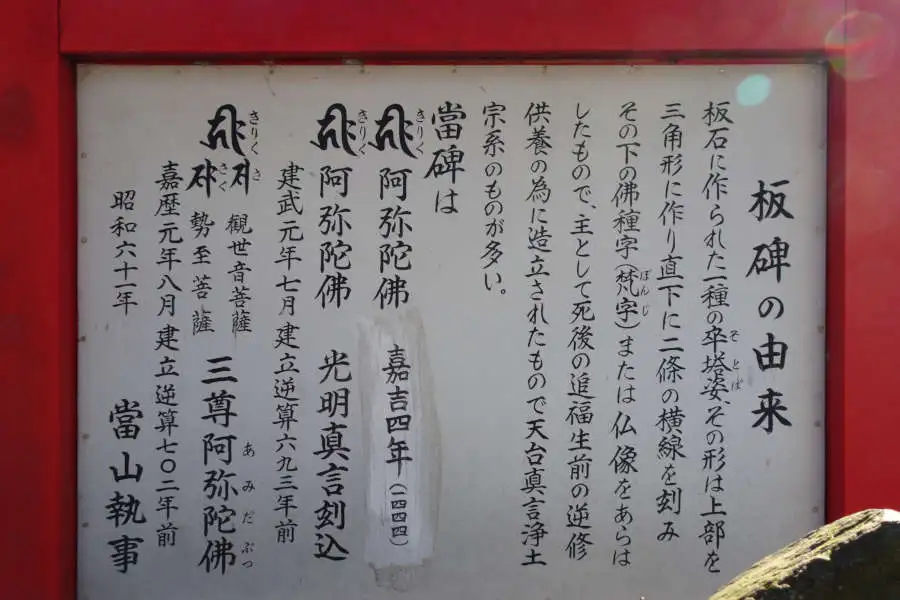 板碑の由来
板石に作られた一種の卒塔婆、その形は上部を
三角形に作り直下に二條の横線を刻み
その下の佛種字(梵字)または仏像をあらは
したもので、主として死後の追福生前の逆修
供養の為に造立されたもので天台真言浄土
宗系のものが多い。
當碑は
阿弥陀佛 嘉吉四年(一四四四)
阿弥陀佛 光明真言刻込
建武元年七月建立逆算六九三年前
観世音菩薩
勢至菩薩
三尊阿弥陀佛
嘉歴元年八月建立逆算七〇二年前
昭和六十一年 當山執事
そとば
ぼんじ
きりく
きりく
きりく
さ
さく
あみだぶつ